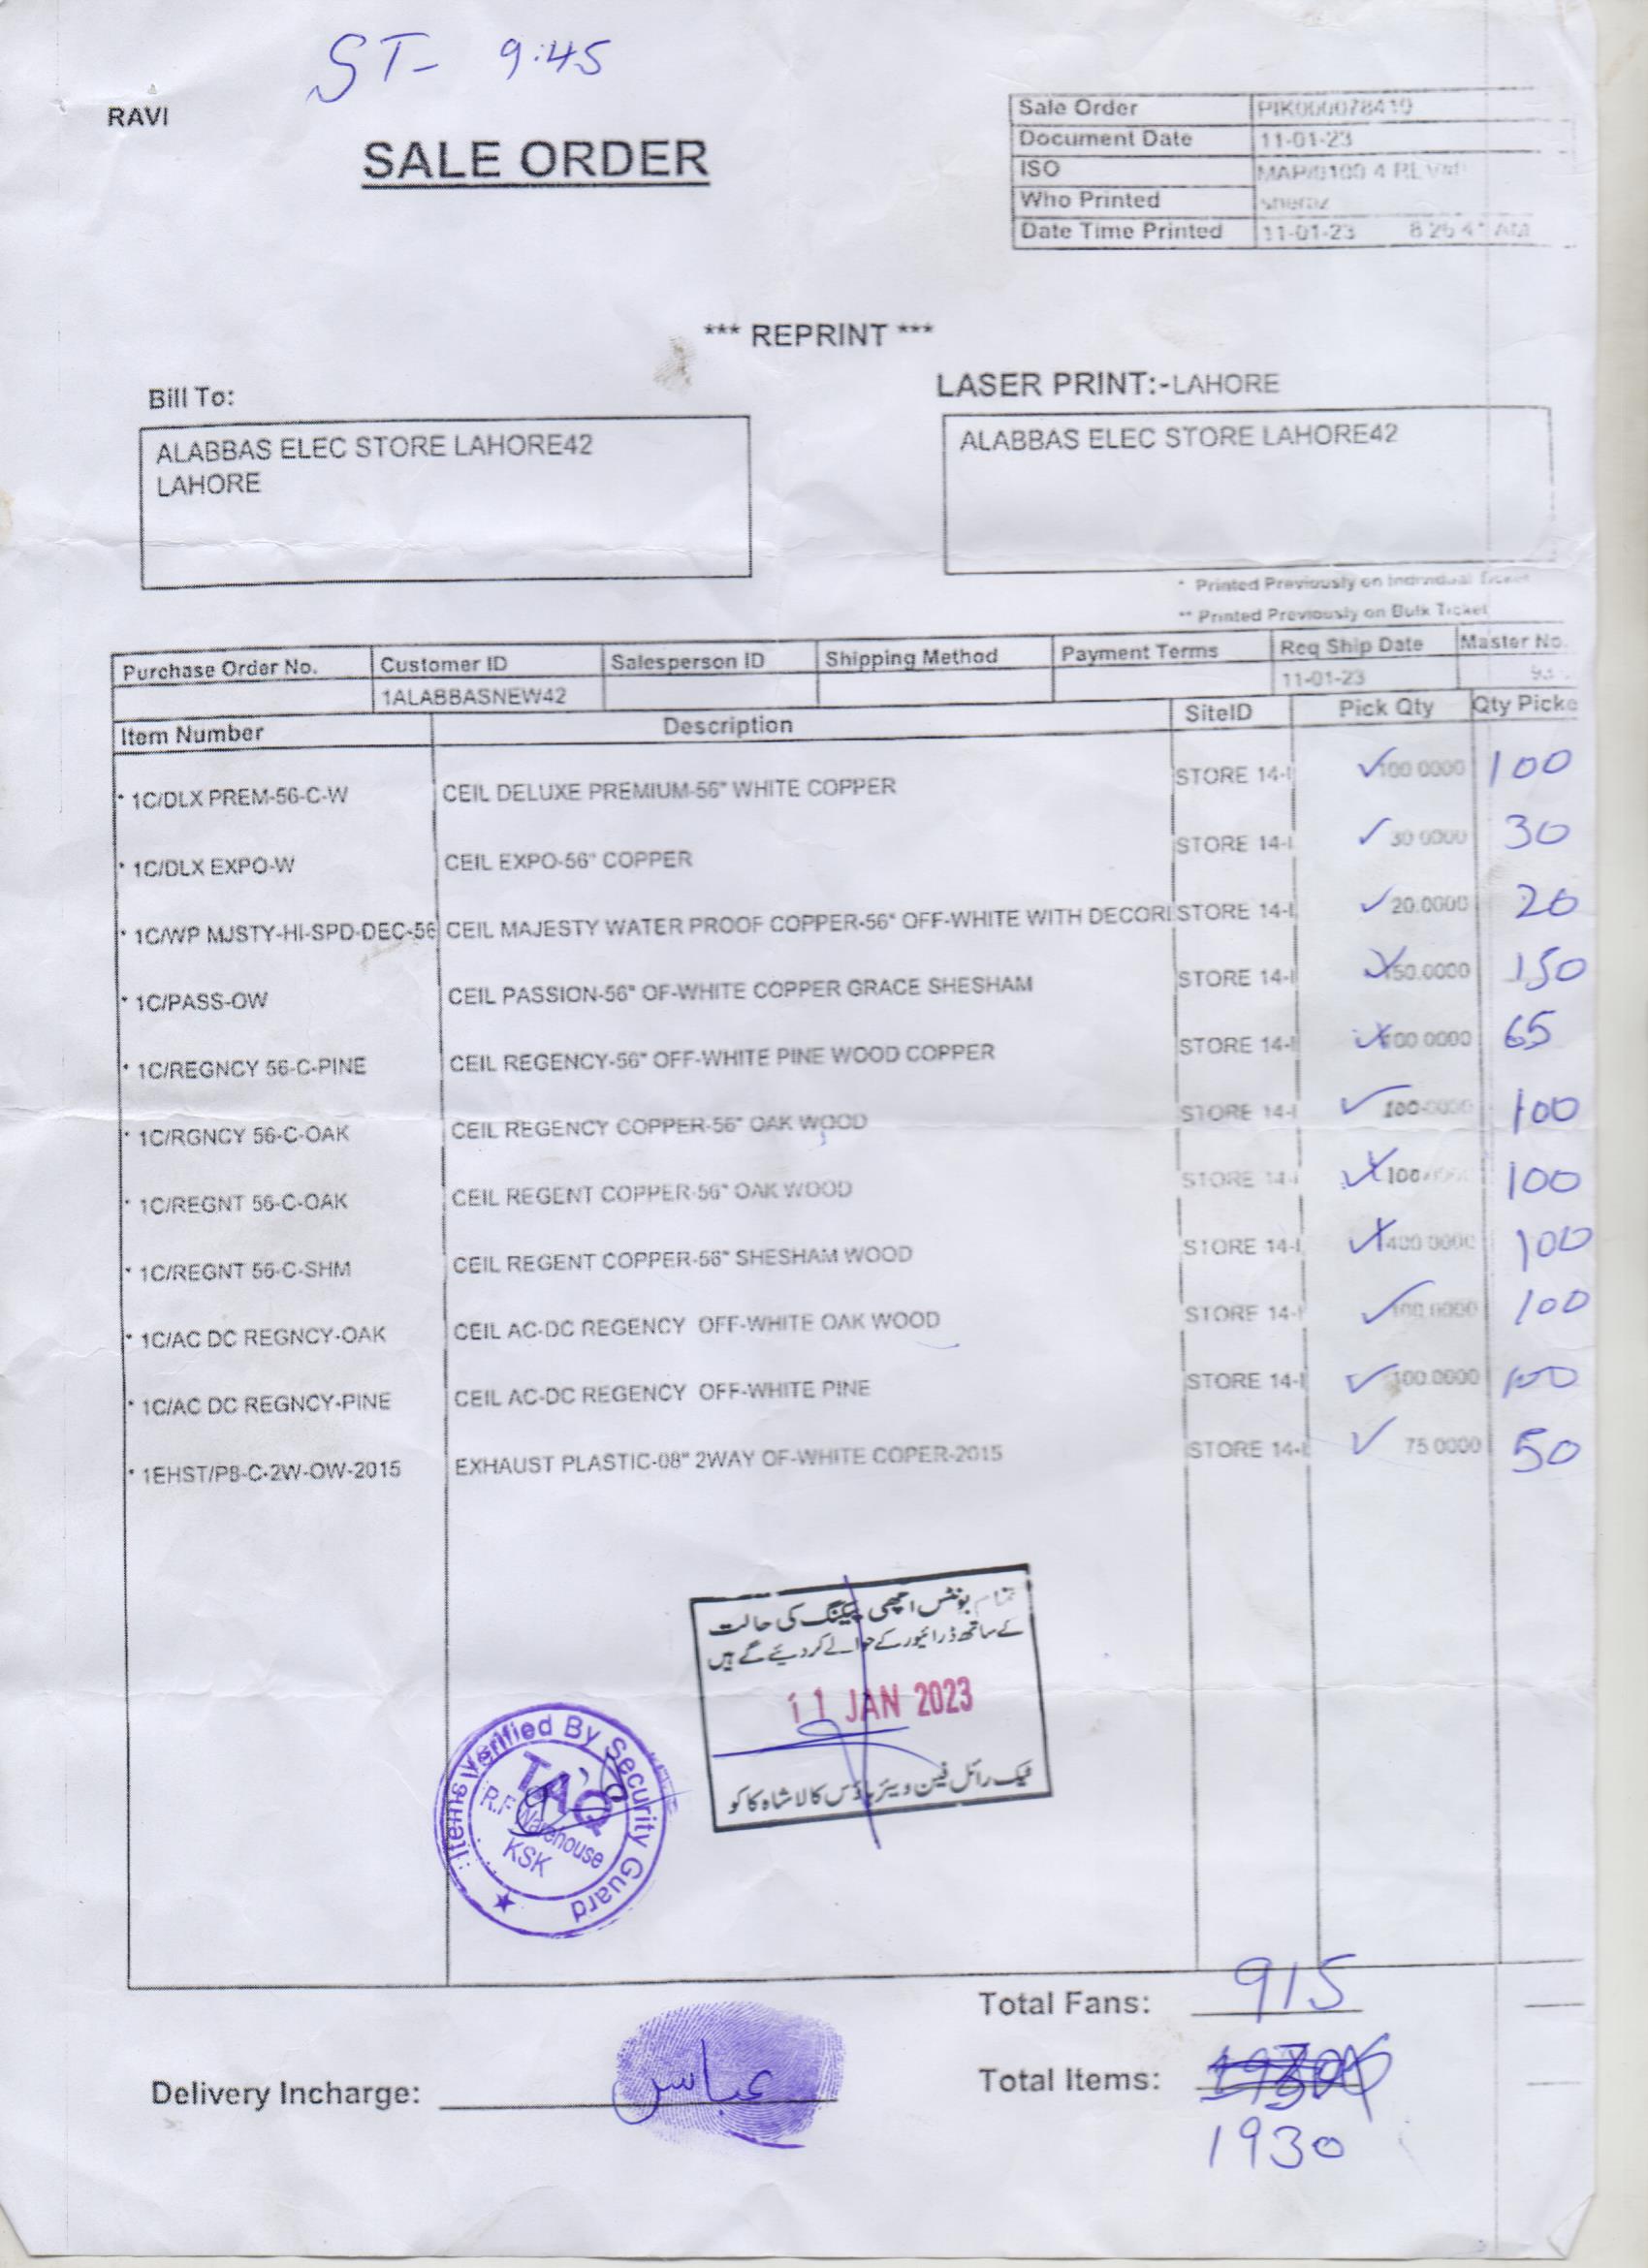 ST- 9:45
RAVI
SALE ORDER
Sale Order PIK000078410
Document Date 11-01-23
ISO
Who Printed
Date Time Printed 11-01-23 8 26 4 AM
*** REPRINT ***
Bill To:
LASER PRINT:-LAHORE
ALABBAS ELEC STORE LAHORE42
LAHORE
ALABBAS ELEC STORE LAHORE42
* Printed Previously on Individual Ticket
** Printed Previously on Bulk Ticket
Purchase Order No. Customer ID Salesperson ID Shipping Method Payment Terms Req Ship Date Master No.
1ALABBASNEW42 11-01-23
Item Number Description SiteID Pick Qty Qty Picke
* 1C/DLX PREM-56-C-W CEIL DELUXE PREMIUM-56" WHITE COPPER STORE 14-I 100 0000 100
* 1C/DLX EXPO-W CEIL EXPO-56" COPPER STORE 14-I 30 0000 30
* 1C/WP MJSTY-HI-SPD-DEC-56 CEIL MAJESTY WATER PROOF COPPER-56" OFF-WHITE WITH DECORI STORE 14-I 20.0000 20
* 1C/PASS-OW CEIL PASSION-56" OF-WHITE COPPER GRACE SHESHAM STORE 14-I 150.0000 150
* 1C/REGNCY 56-C-PINE CEIL REGENCY-56" OFF-WHITE PINE WOOD COPPER STORE 14-I 00 0000 65
* 1C/RGNCY 56-C-OAK CEIL REGENCY COPPER-56" OAK WOOD STORE 14-I 100.0000 100
* 1C/REGNT 56-C-OAK CEIL REGENT COPPER-56" OAK WOOD STORE 14-I 100 100
* 1C/REGNT 56-C-SHM CEIL REGENT COPPER-56" SHESHAM WOOD STORE 14-I 400 0000 100
* 1C/AC DC REGNCY-OAK CEIL AC-DC REGENCY OFF-WHITE OAK WOOD STORE 14-I 100.0000 100
* 1C/AC DC REGNCY-PINE CEIL AC-DC REGENCY OFF-WHITE PINE STORE 14-I 100.0000 100
* 1EHST/P8-C-2W-OW-2015 EXHAUST PLASTIC-08" 2WAY OF-WHITE COPER-2015 STORE 14-I 75 0000 50
تمام یونٹس اچھی پیکنگ کی حالت
کے ساتھ ڈرائیور کے حوالے کر دیئے گے ہیں
11 JAN 2023
ٹیک رائل فین ویئر ہاؤس کالا شاہ کاکو
Items Verified By Security Guard
TAQ
R.F Warehouse
KSK
Total Fans: 915
Delivery Incharge: عباس
Total Items:
1930